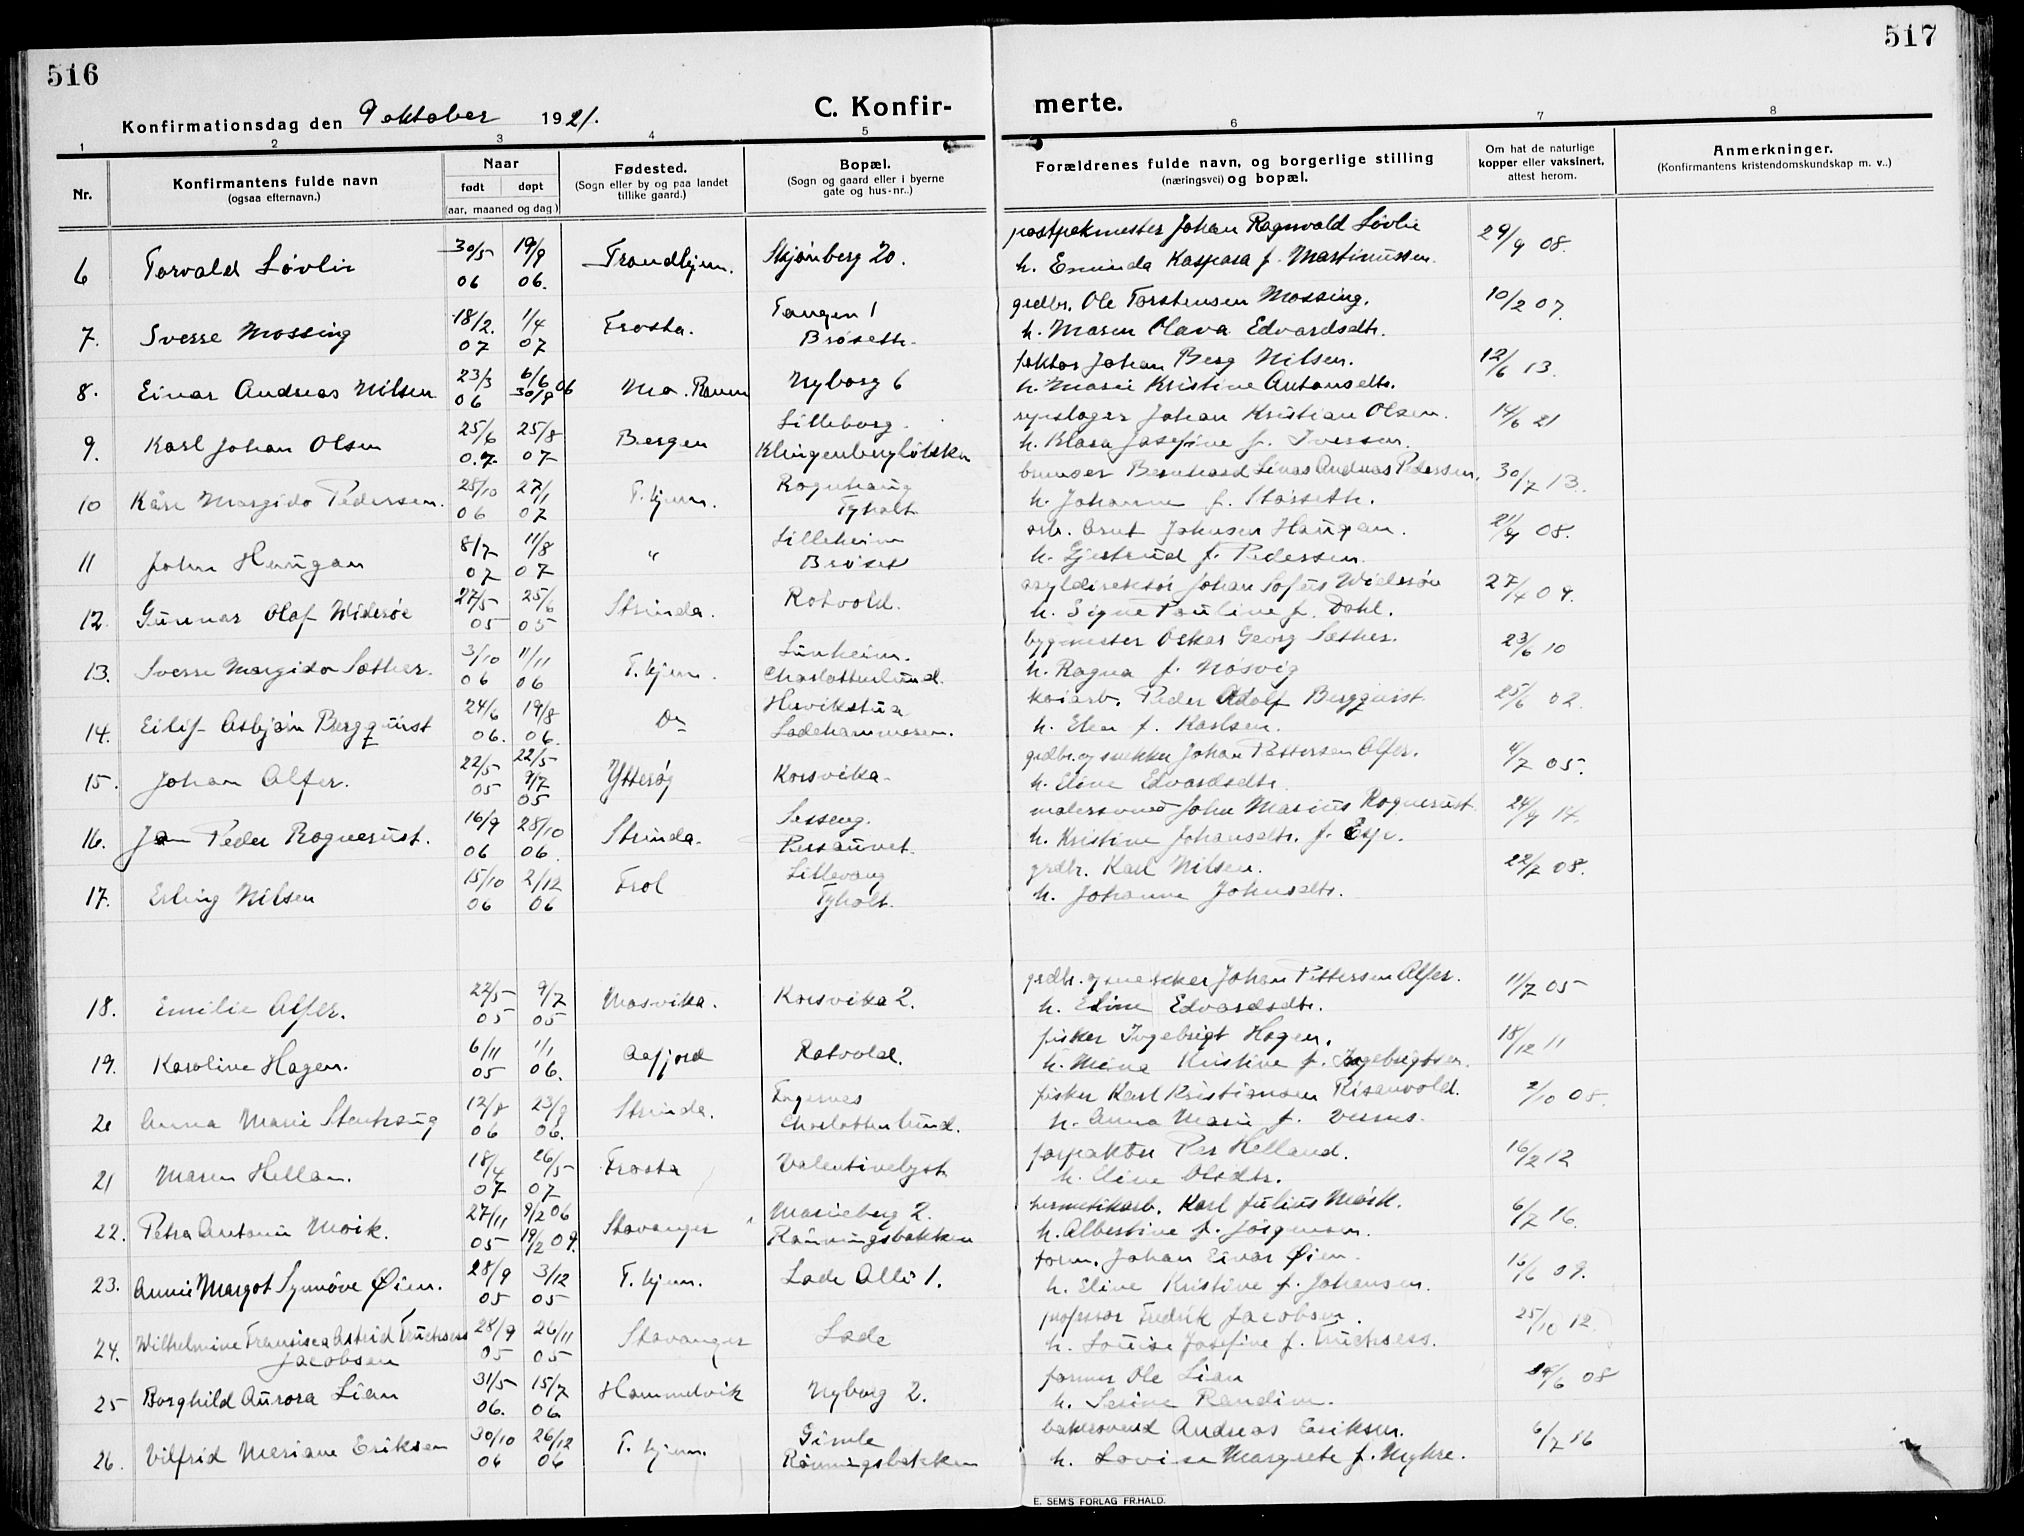 516
517
Konfirmationsdag den 9 oktober 1921.
C. Konfir-
merte.
1 2 3 4 5 6 7 8
Nr.
Konfirmantens fulde navn
(ogsaa efternavn.)
Naar
født døpt
(aar, maaned og dag.)
Fødested.
(Sogn eller by og paa landet
tillike gaard.)
Bopæl.
(Sogn og gaard eller i byerne
gate og hus-nr.)
Forældrenes fulde navn, og borgerlige stilling
(næringsvei) og bopæl.
Om hat de naturlige
kopper eller vaksinert,
attest herom.
Anmerkninger.
(Konfirmantens kristendomskundskap m. v..)
6 Torvald Løvlie 30/5 06 19/9 06. Trondhjem. Skjønberg 20. postpakmester Johan Ragnvald Løvlie 29/9 08.
h. Kaspara f. Martinussen.
7. Sverre Mossing 18/2. 07 1/4 07 Frosta. Tangen 1 grdbr. Ole Torstensen Mossing. 10/2 07.
Brøseth. h. Maren Olava Edvardsdtr.
8. Einar Andreas Nilsen 23/3 06 6/6 06 30/9 Mo. Ranen Nyborg 6 faktor Johan Berg Nilsen. 12/6 13.
h. Marie Kristine Antonsdtr.
9. Karl Johan Olsen 25/6 07 25/8 07 Bergen Lilleborg. repslager Johan Kristian Olsen. 14/6 21
h. Klara Josefine f. Iversen.
10 Kåre Margido Pedersen. 25/10 06 27/1 07 T.hjem. Rognhaug Bernhard Linas Andreas Pedersen. 30/7 13.
Tyholt h. Johanne f. Størseth.
11 John Haugan 8/7 07 11/8 07 " Lilleheim arb. Arnt Johnsen Haugan. 21/9 08.
Brøset h. Gjertrud f. Pedersen.
12. Gunnar Olaf Widerøe 27/5 05 25/6 05 Strinda. Rotvold. asyldirektør Johan Sofus Widerøe 27/4 09.
h. Signe Pauline f. Dahl.
13. Sverre Margido Sæther. 3/10 06 11/11 06 T.hjem. Lunheim. bygmester Oskar Georg Sæther. 23/6 10
Charlottenlund. h. Ragna f. Nøsvig
14. Eilif Asbjørn Bergquist 24/6 06. 19/8 06. Do Hervikstua Peder Adolf Bergquist 25/6 02.
Ladehammeren. h. Elen f. Karlsen.
15. Johan Alfer. 22/5 05 22/5 9/7 05 Ytterøy Korsvika. grdbr. og snekker Johan Pettersen Alfer. 4/7 05.
h. Eline Edvardsdtr.
16. Jon Peder Rognerust. 16/9 06 28/10 06. Strinda. malersvend John Marius Rognerust 24/9 14.
Persaunet. h. Kristine Johansdtr. f. Esp.
17. Erling Nilsen 15/10 06 2/12 06 Frol Lillevang grdbr. Karl Nilsen. 22/7 08.
Tyholt. h. Johanna Johnsdtr.
18. Emilie Alfer. 22/5 05 9/7 05 Mosvika. Korsvika 2. grdbr. og snekker Johan Pettersen Alfer. 11/7 05
h. Eline Edvardsdtr.
19. Karoline Hagen. 6/11 05 1/1 06. Aafjord Rotvold. fisker Ingebrigt Hagen. 18/12 11
h. Kristine f. Ingebrigtsen.
20 Anna Marie Stenhaug 12/8 06 23/9 06. Strinda. Fagernes fisker Karl Kristiansen Risanvold. 2/10 08.
Charlottenlund. h. Anna Marie f. Vernes.
21 Maren Hellan. 18/4 07 26/5 07 Frosta Valentinelyst forpakter Per Helland. 16/2 12
h. Eline Olsdtr.
22. Petra Antonie Moik. 27/11 05 9/2 06 19/2 09. Stavanger Marieberg 2. hermetikarb. Karl Julius Mørk. 6/7 16.
Rønningsbakken h. Albertine f. Jørgensen.
23. Annie Margot Synnøve Øien. 28/9 05 3/12 05 T.hjem. Lade Allé 1. form. Johan Einar Øien. 16/6 09.
h. Eline Kristine f. Johansen.
24. Wilhelmine Fransisca Astrid Truchsess 28/9 05 26/11 05 Stavanger Lade professor Fredrik Jacobsen. 25/10 12.
Jacobsen h. Louise Josefine f. Truchsess.
25 Borghild Aurora Lian 31/5 06. 15/7 06. Hommelvik Nyborg 2. former Ole Lian 24/6 08
h. Serine Randine.
26. Vilfrid Meriane Eriksen 30/10 06 26/12 06 T. hjem. Gimle bakersvend Andreas Eriksen. 6/7 16
Rønningsbakken h. Lovise Margrete f. Myhre.
E. SEM'S FORLAG FR.HALD.